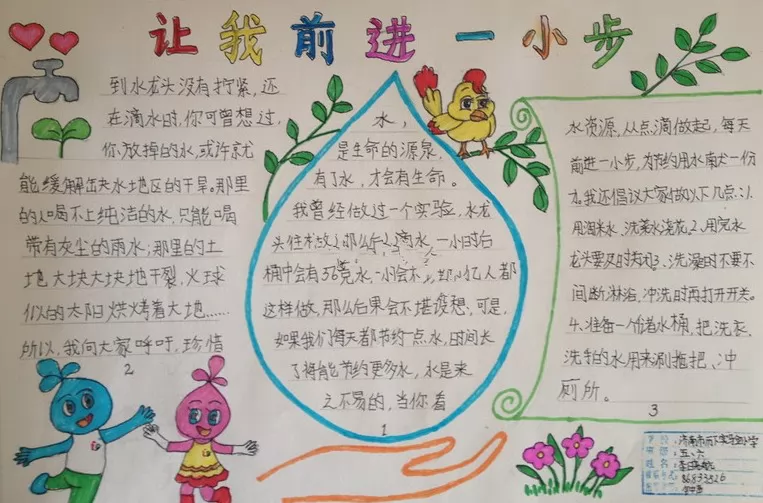 让我前进一小步
水,
是生命的源泉,
有了水,才会有生命。
我曾经做过一个实验,水龙
头任
滴水,一小时后
桶中会有36克水,一小会不
亿人都
这样做,那么后果会不堪设想,可是,
如果我们每天都节约一点水,时间长
了将能节约更多水,水是来
之不易的,当你看
1
到水龙头没有拧紧,还
在滴水时,你可曾想过,
你放掉的水,或许就
能缓解缺水地区的干旱。那里
的人喝不上纯洁的水,只能喝
带有灰尘的雨水;那里的土
地大块大块地干裂,火球
似的太阳烘烤着大地……
所以,我向大家呼吁,珍惜
2
水资源,从点滴做起,每天
前进一小步,为节约用水献一份
力。我还倡议大家做以下几点:1.
用淘米水、洗菜水浇花2.用完水
龙头要及时关闭3.洗澡时不要不
间断淋浴,冲洗时再打开开关。
4.准备一个储水桶,把洗衣、
洗手的水用来涮拖把、冲
厕所。
3
学校:济南市历下实验小学
班级:五、六
姓名:
86833826